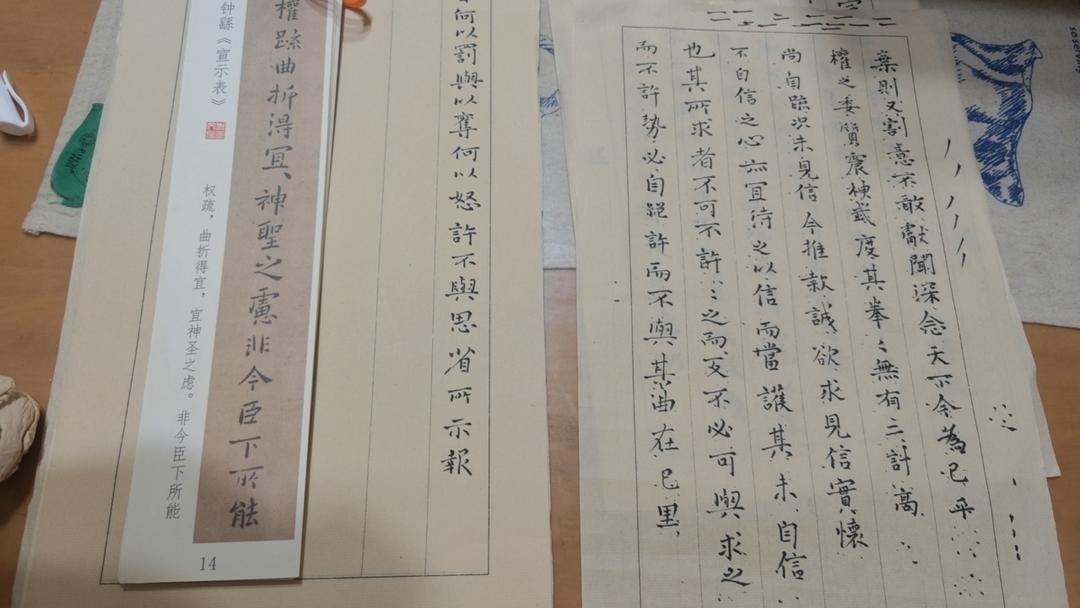 棄則又割意不敢獻聞深念天下今為已平
權之委質震神武度其拳〻無有二計高
尚自疏況未見信今推款誠欲求見信實懷
不自信之心亦冝待之以信而當護其未自信
也其所求者不可不許〻之而反不必可與求之
而不許勢必自絕許而不與其曲在己里
何以罰與以奪何以怒許不與思省所示報
權疏曲折得冝神聖之慮非今臣下所能
钟繇《宣示表》
权疏，曲折得宜，宜神圣之虑。非今臣下所能
14